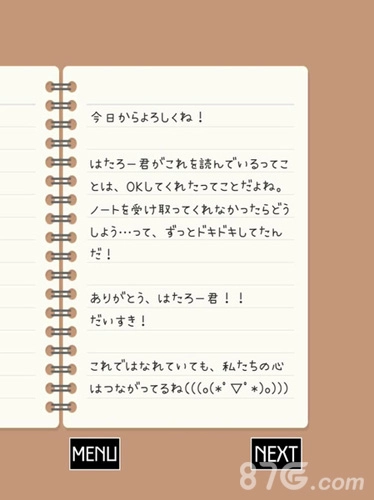 今日からよろしくね！
はたろー君がこれを読んでいるってこ
とは、OKしてくれたってことだよね。
ノートを受け取ってくれなかったらどう
しよう…って、ずっとドキドキしてたん
だ！
ありがとう、はたろー君！！
だいすき！
これではなれていても、私たちの心
はつながってるね(((o(*ﾟ▽ﾟ*)o)))
MENU
NEXT
87G.com